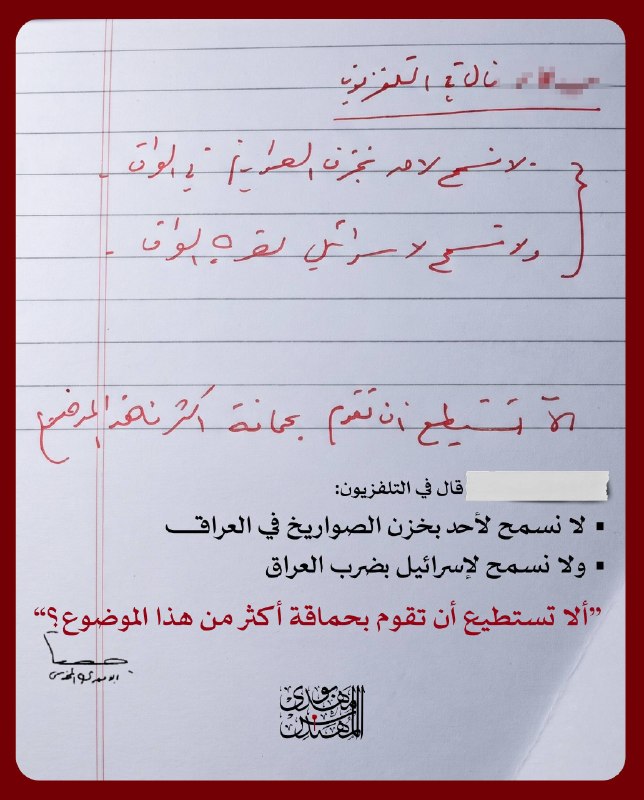 قال في التلفزيون
- لا نسمح لاحد بخزن الصواريخ في العراق -
ولا نسمح لاسرائيل بضرب العراق -
الا تستطيع ان تقوم بحماقة اكثر من هذا الموضوع
قال في التلفزيون:
▪ لا نسمح لأحد بخزن الصواريخ في العراق
▪ ولا نسمح لإسرائيل بضرب العراق
”ألا تستطيع أن تقوم بحماقة أكثر من هذا الموضوع؟“
ابو مهدي المهندس
أبو مهدي
المهندس